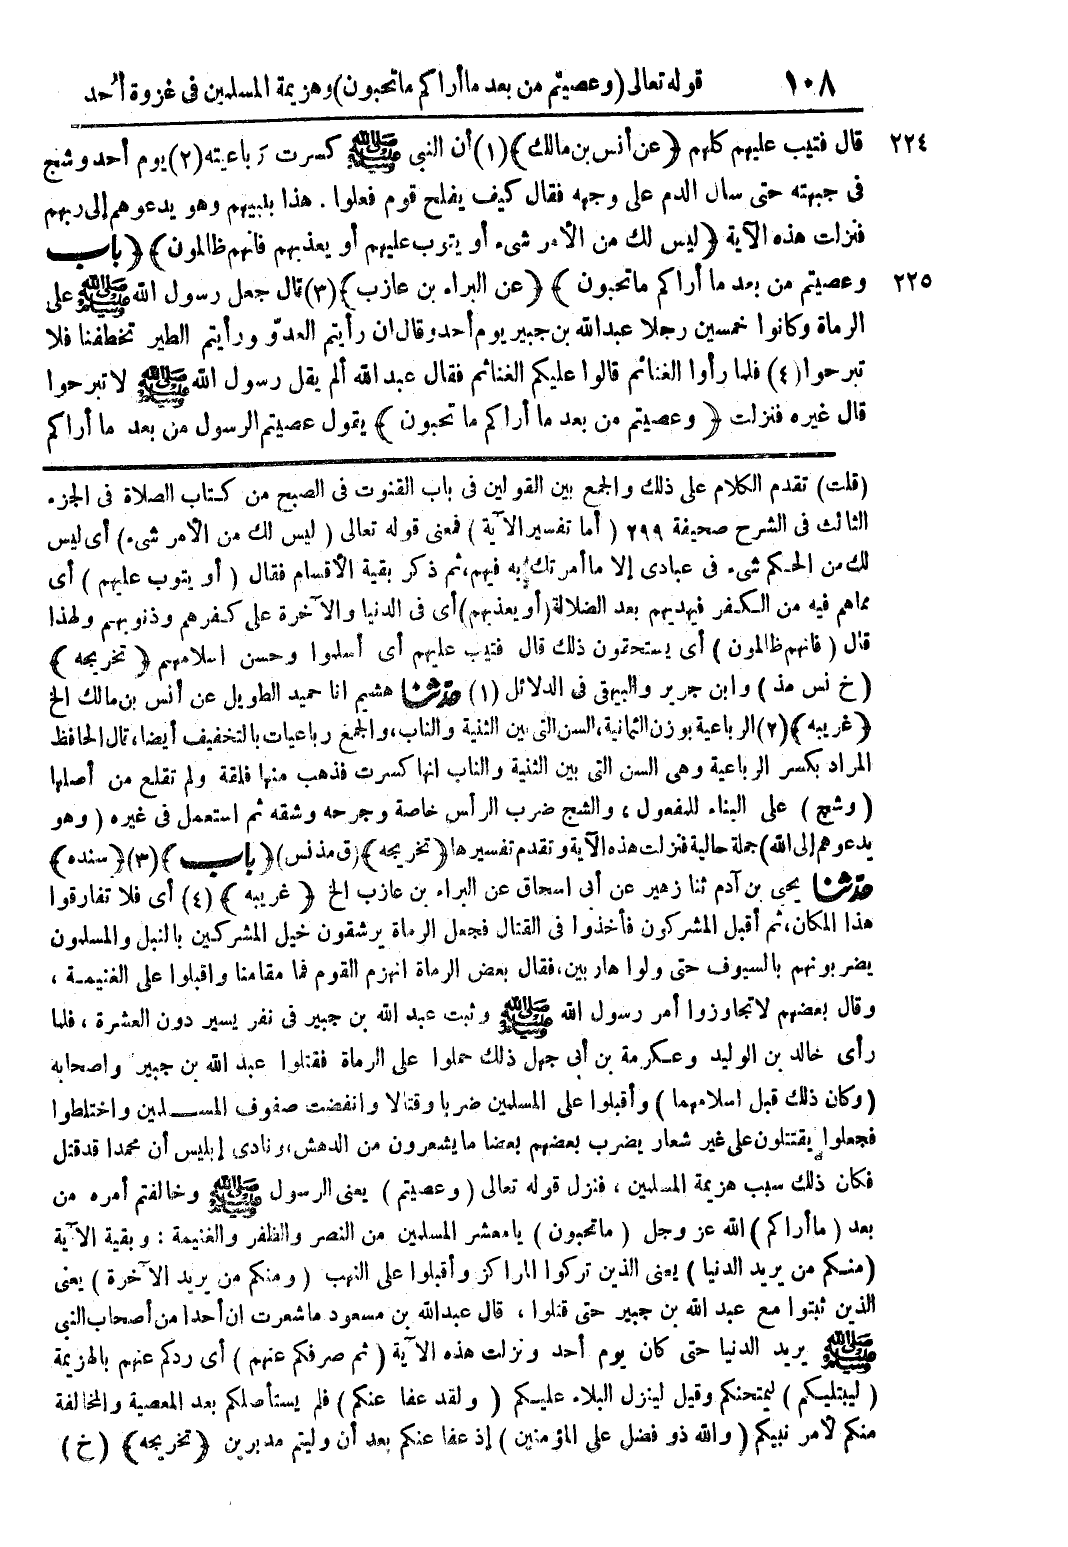 ١٠٨ قوله تعالى (وعصيتم من بعد ما أراكم ما تحبون) وهزيمة المسلمين فى غزوة أُحد
٢٢٤ قال فتيب عليهم كلهم ﴿عن أنس بن مالك﴾ (١) أن النبى ﷺ كسرت رَباعيته (٢) يوم أحد وشج
فى جبهته حتى سال الدم على وجهه فقال كيف يفلح قوم فعلوا . هذا بنبيهم وهو يدعوهم إلى ربهم
فنزلت هذه الآية ﴿ليس لك من الأمر شىء أو يتوب عليهم أو يعذبهم فانهم ظالمون﴾ ﴿باب
٢٢٥ وعصيتم من بعد ما أراكم ما تحبون ﴾ ﴿ عن البراء بن عازب﴾ (٣) قال جعل رسول الله ﷺ على
الرماة وكانوا خمسين رجلا عبد الله بن جبير يوم أحد وقال ان رأيتم العدوّ ورأيتم الطير تخطفنا فلا
تبرحوا (٤) فلما رأوا الغنائم قالوا عليكم الغنائم فقال عبد الله ألم يقل رسول الله ﷺ لا تبرحوا
قال غيره فنزلت ﴿ وعصيتم من بعد ما أراكم ما تحبون ﴾ يقول عصيتم الرسول من بعد ما أراكم
(قلت) تقدم الكلام على ذلك والجمع بين القولين فى باب القنوت فى الصبح من كتاب الصلاة فى الجزء
الثالث فى الشرح صحيفة ٢٩٩ ( أما تفسير الآية ) فمعنى قوله تعالى ( ليس لك من الأمر شىء) أى ليس
لك من الحكم شىء فى عبادى إلا ما أمرتك به فيهم، ثم ذكر بقية الأقسام فقال ( أو يتوب عليهم ) أى
مماهم فيه من الكفر فيهديهم بعد الضلالة (أو يعذبهم) أى فى الدنيا والآخرة على كفرهم وذنوبهم ولهذا
قال ( فانهم ظالمون ) أى يستحقون ذلك قال فتيب عليهم أى أسلموا وحسن اسلامهم ﴿ تخريجه ﴾
(خ نس مذ) وابن جرير والبيهقى فى الدلائل (١) حدّثنا هشيم انا حميد الطويل عن أنس بن مالك الخ
﴿غريبه﴾ (٢) الرباعية بوزن الثمانية، السن التى بين الثنية والناب، والجمع رباعيات بالتخفيف أيضا، قال الحافظ
المراد بكسر الرباعية وهى السن التى بين الثنية والناب انها كسرت فذهب منها فلقة ولم تقلع من أصلها
( وشج ) على البناء للمفعول ، والشج ضرب الرأس خاصة وجرحه وشقه ثم استعمل فى غيره ( وهو
يدعوهم إلى الله) جملة حالية فنزلت هذه الآية وتقدم تفسيرها ﴿تخريجه﴾ (ق مذ نس) ﴿باب﴾ (٣) ﴿سنده﴾
حدّثنا يحيى بن آدم ثنا زهير عن أبى اسحاق عن البراء بن عازب الخ ﴿ غريبه ﴾ (٤) أى فلا تفارقوا
هذا المكان، ثم أقبل المشركون فأخذوا فى القتال فجعل الرماة يرشقون خيل المشركين بالنبل والمسلمون
يضربونهم بالسيوف حتى ولوا هاربين، فقال بعض الرماة انهزم القوم فما مقامنا واقبلوا على الغنيمة ،
وقال بعضهم لا تجاوزوا أمر رسول الله ﷺ وثبت عبد الله بن جبير فى نفر يسير دون العشرة ، فلما
رأى خالد بن الوليد وعكرمة بن أبى جهل ذلك حملوا على الرماة فقتلوا عبد الله بن جبير واصحابه
(وكان ذلك قبل اسلامهما ) وأقبلوا على المسلمين ضربا وقتالا وانفضت صفوف المسلمين واختلطوا
فجعلوا يقتتلون على غير شعار يضرب بعضهم بعضا ما يشعرون من الدهش، ونادى إبليس أن محمدا قد قتل
فكان ذلك سبب هزيمة المسلمين ، فنزل قوله تعالى ( وعصيتم ) يعنى الرسول ﷺ وخالفتم أمره من
بعد ( ما أراكم ) الله عز وجل ( ما تحبون ) يا معشر المسلمين من النصر والظفر والغنيمة : وبقية الآية
(منكم من يريد الدنيا ) يعنى الذين تركوا المراكز وأقبلوا على النهب ( ومنكم من يريد الآخرة ) يعنى
الذين ثبتوا مع عبد الله بن جبير حتى قتلوا ، قال عبد الله بن مسعود ما شعرت ان أحدا من أصحاب النبى
ﷺ يريد الدنيا حتى كان يوم أحد ونزلت هذه الآية ( ثم صرفكم عنهم ) أى ردكم عنهم بالهزيمة
( ليبتليكم ) ليمتحنكم وقيل لينزل البلاء عليكم ( ولقد عفا عنكم ) فلم يستأصلكم بعد المعصية والمخالفة
منكم لأمر نبيكم ( والله ذو فضل على المؤمنين ) إذ عفا عنكم بعد أن وليتم مدبرين ﴿تخريجه﴾ (خ)